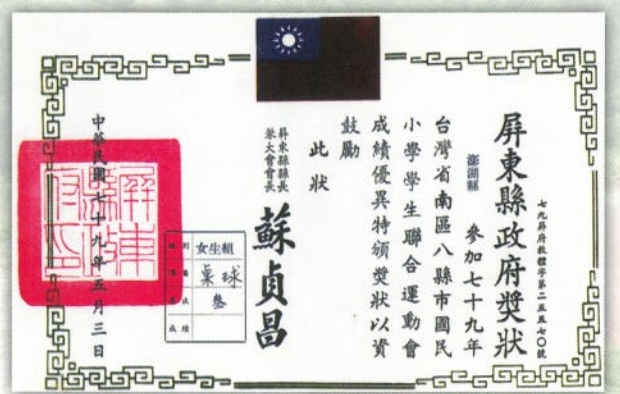 七九屏府教體字第二五五七〇號
屏東縣政府獎狀
澎湖縣 參加七十九年
台灣省南區八縣市國民
小學學生聯合運動會
成績優異特頒獎狀以資
鼓勵
此狀
屏東縣縣長
兼大會會長
蘇貞昌
組別 女生組
桌球
叁
成績
中華民國七十九年五月三日
屏東縣政府印